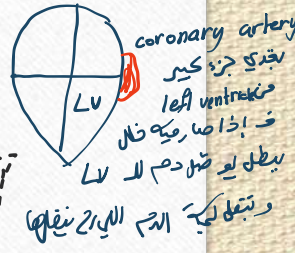 coronary artery
بغذي جزء كبير
من left ventricle
ف إذا صار فيه خلل
LV
ببطل يوصل دم لل LV
و بتقل كمية الدم اللي رح نيضخها